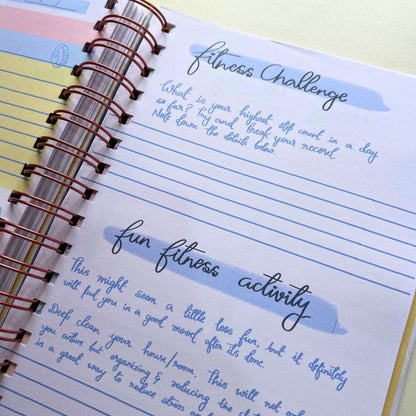 fitness Challenge
What is your highest step count in a day
so far? Try and break your record.
Note down the details below.
fun fitness activity
This might seem a little less fun, but it definitely
will put you in a good mood after its done.
Deep clean your house/room. This will not only
you active but organizing & reducing the
is a great way to reduce stress